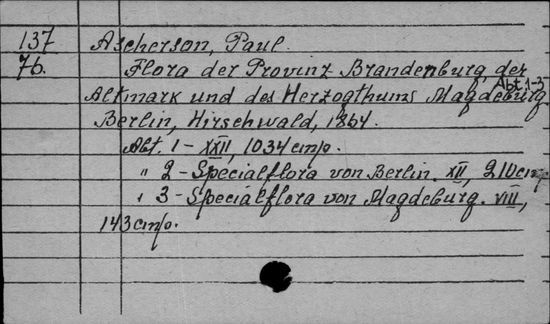 137 Ascherson, Paul.
7б. Flora der Provinz Brandenburg, der
Abt. 1-3
Altmark und des Herzogthums Magdeburg
Berlin, Hirschwald, 1864.
Abt. 1 - XXII, 1034 стр.
" 2 - Specialflora von Berlin. XII, 210 стр
" 3 - Specialflora von Magdeburg. VIII,
143 стр.